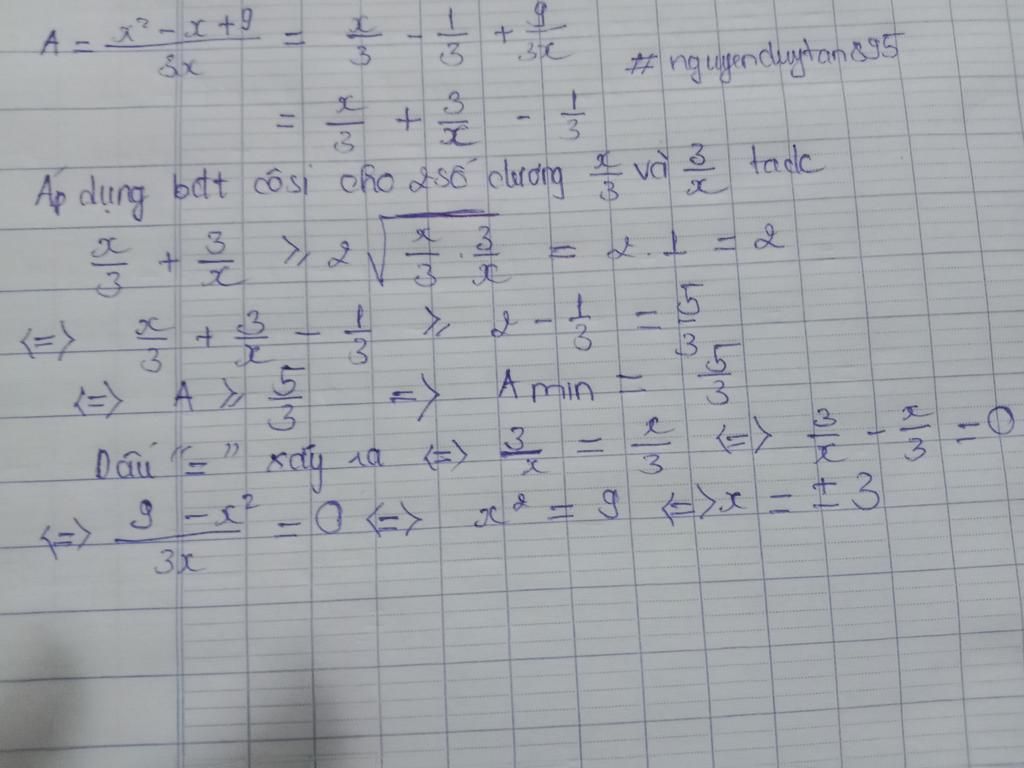 A = \frac{x² - x + 9}{3x} = \frac{x}{3} - \frac{1}{3} + \frac{9}{3x}
#nguyenduytan895
= \frac{x}{3} + \frac{3}{x} - \frac{1}{3}
Áp dụng bđt côsi cho 2 số dương \frac{x}{3} và \frac{3}{x} tađc
\frac{x}{3} + \frac{3}{x} ≥ 2\sqrt{\frac{x}{3} . \frac{3}{x}} = 2 . 1 = 2
<=> \frac{x}{3} + \frac{3}{x} - \frac{1}{3} ≥ 2 - \frac{1}{3} = \frac{5}{3}
<=> A ≥ \frac{5}{3} => A min = \frac{5}{3}
Dấu "=" xảy ra <=> \frac{3}{x} = \frac{x}{3} <=> \frac{3}{x} - \frac{x}{3} = 0
<=> \frac{9 - x²}{3x} = 0 <=> x² = 9 <=> x = ± 3